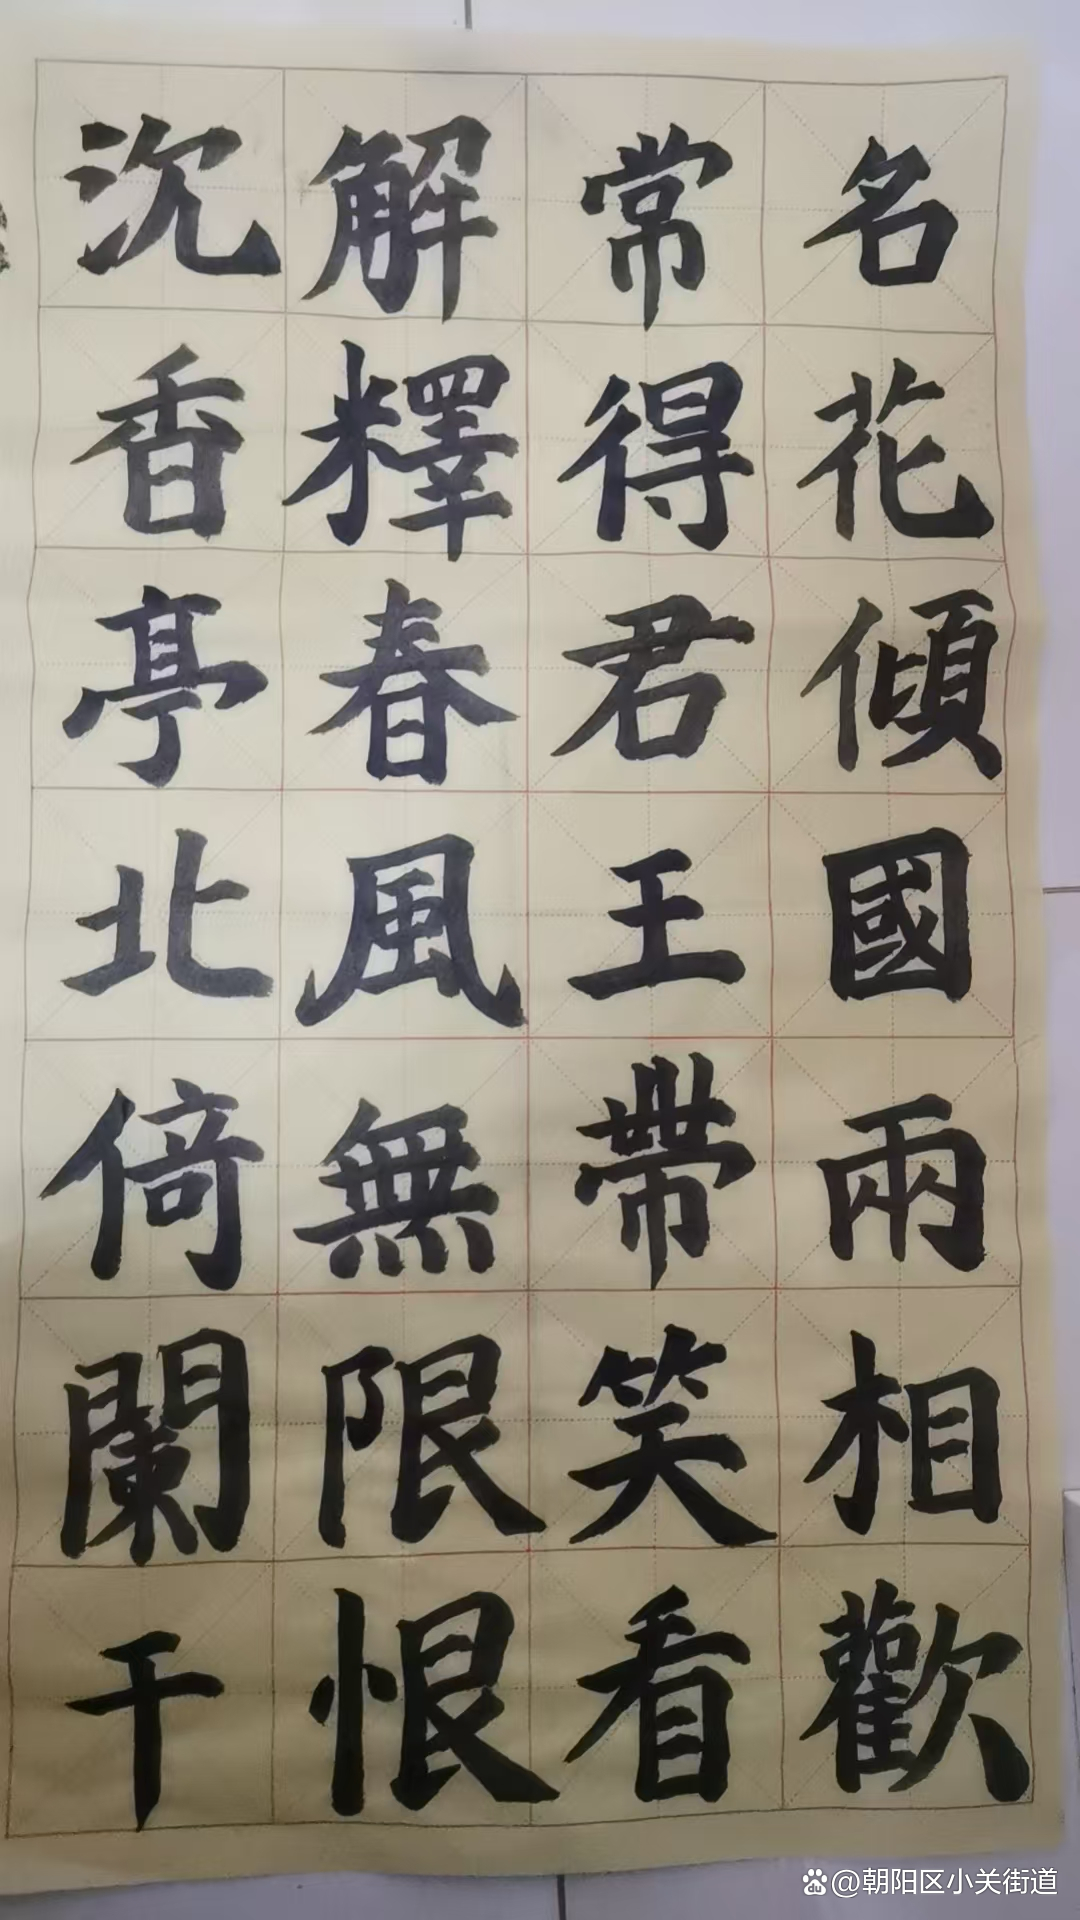 名花傾國兩相歡
常得君王帶笑看
解釋春風無限恨
沉香亭北倚闌干
@朝阳区小关街道